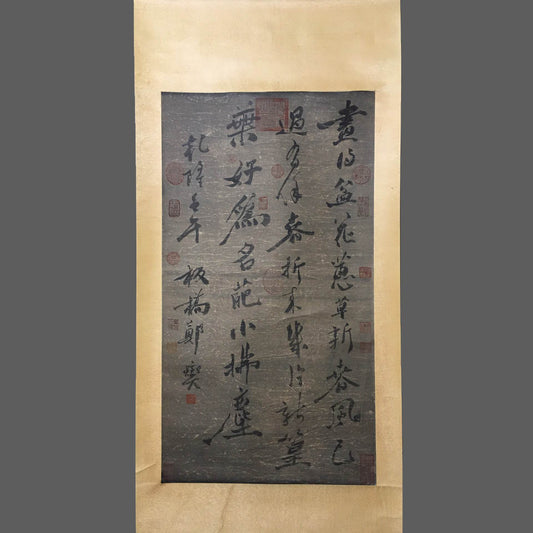 畫得盆花蕙草新春風已
過有餘春折來幾片新篁
葉好為名葩小拂塵
乾隆壬午板橋鄭燮